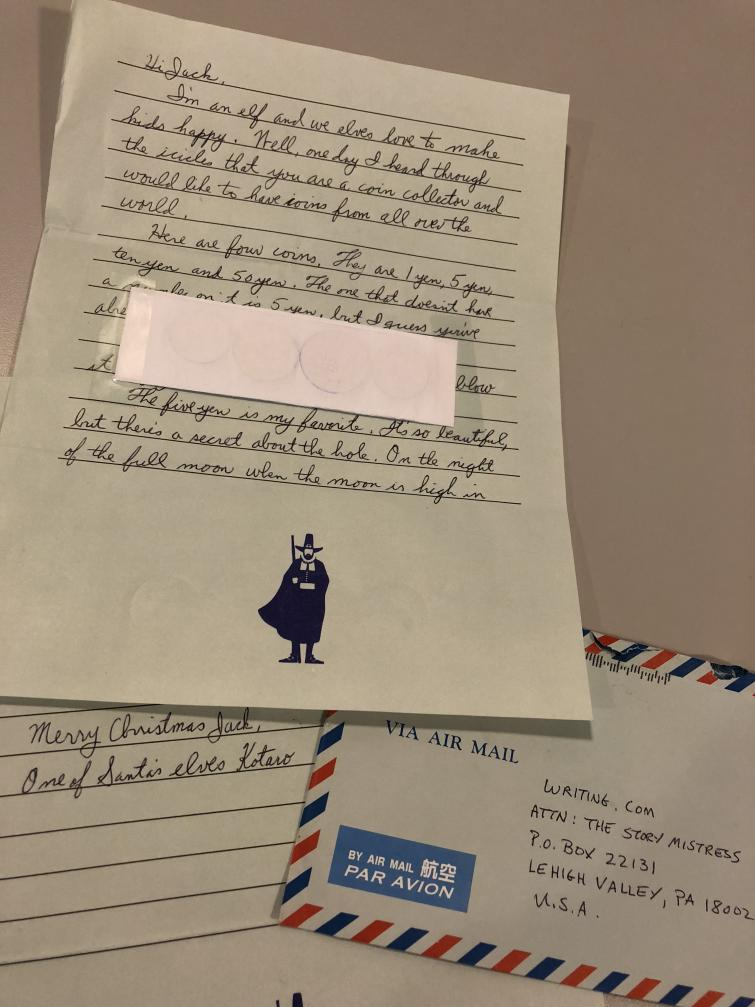 Hi Jack,
I'm an elf and we elves love to make
kids happy. Well, one day I heard through
the icicles that you are a coin collector and
would like to have coins from all over the
world.
Here are four coins. They are 1 yen, 5 yen,
ten yen and 50 yen. The one that doesn't have
a on it is 5 yen, but I guess you've
it blow
The five yen is my favorite. It's so beautiful,
but there's a secret about the hole. On the night
of the full moon when the moon is high in
Merry Christmas Jack,
One of Santa's elves Kotaro
VIA AIR MAIL
WRITING.COM
ATTN: THE STORY MISTRESS
P.O. BOX 22131
LEHIGH VALLEY, PA 18002
U.S.A.
BY AIR MAIL 航空
PAR AVION